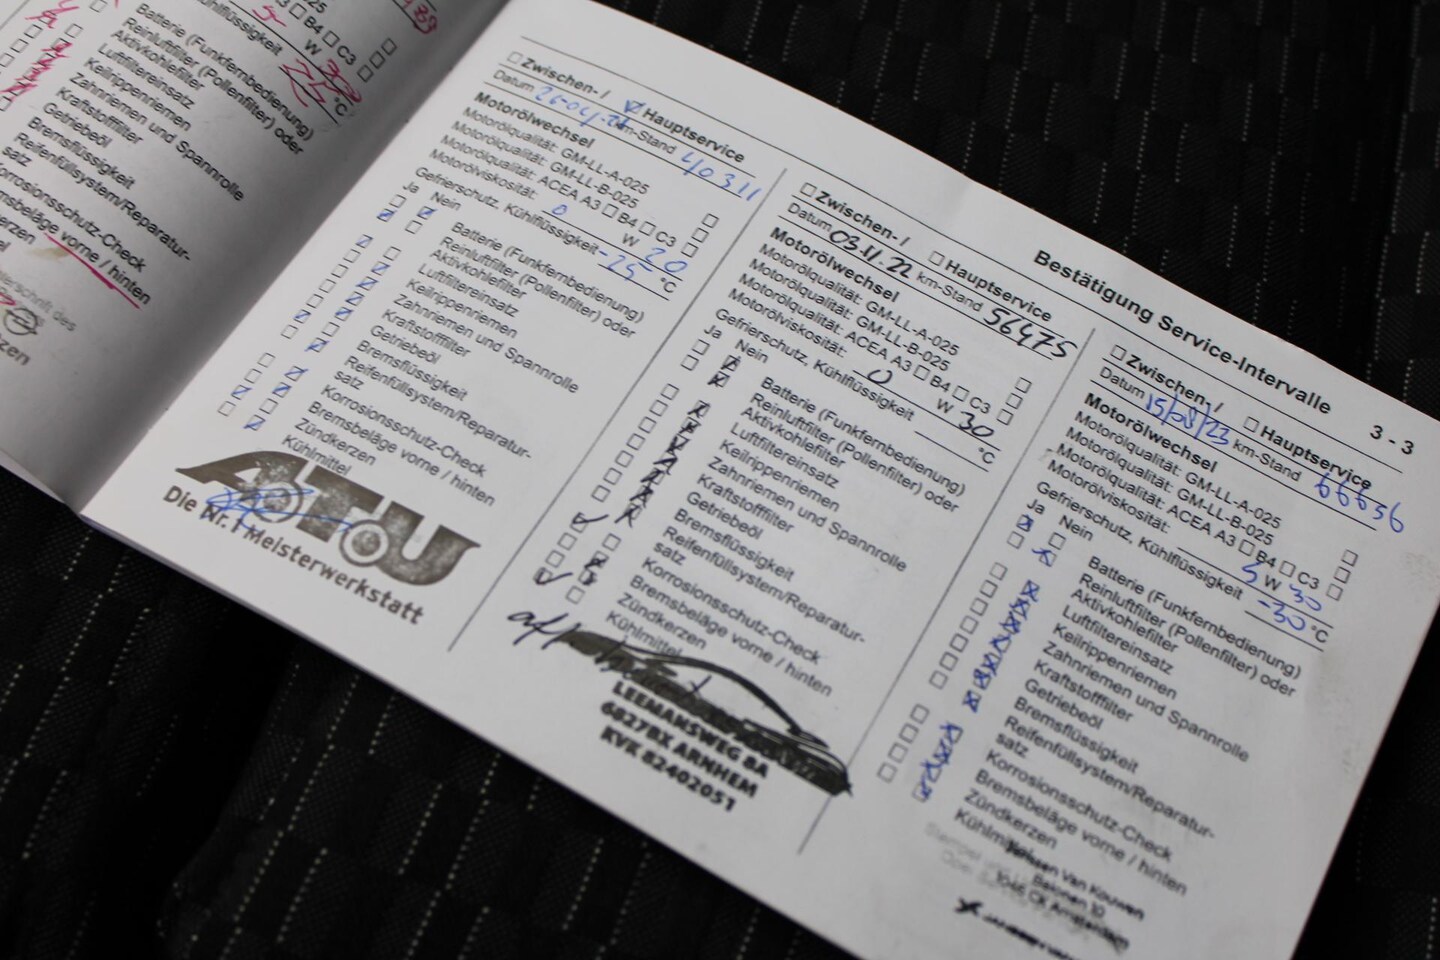 489
B4 C3
Kühlflüssigkeit
W
°C
Batterie (Funkfernbedienung)
Reinluftfilter (Pollenfilter) oder
Aktivkohlefilter
Luftfiltereinsatz
Keilrippenriemen
Zahnriemen und Spannrolle
Kraftstofffilter
Getriebeöl
Bremsflüssigkeit
Reifenfüllsystem/Reparatur-
satz
Korrosionsschutz-Check
vorne / hinten
des
Zwischen- / Hauptservice
Datum 26-04-21 km-Stand 40311
Motorölwechsel
Motorölqualität: GM-LL-A-025
Motorölqualität: GM-LL-B-025
Motorölqualität: ACEA A3 B4 C3
Motorölviskosität: 0 W 20
Gefrierschutz, Kühlflüssigkeit -25 °C
Ja Nein
Batterie (Funkfernbedienung)
Reinluftfilter (Pollenfilter) oder
Aktivkohlefilter
Luftfiltereinsatz
Keilrippenriemen
Zahnriemen und Spannrolle
Kraftstofffilter
Getriebeöl
Bremsflüssigkeit
Reifenfüllsystem/Reparatur-
satz
Korrosionsschutz-Check
Bremsbeläge vorne / hinten
Zündkerzen
Kühlmittel
ATU
Die Nr. 1 Meisterwerkstatt
Bestätigung Service-Intervalle
3 - 3
Zwischen- / Hauptservice
Datum 03.11.22 km-Stand 56475
Motorölwechsel
Motorölqualität: GM-LL-A-025
Motorölqualität: GM-LL-B-025
Motorölqualität: ACEA A3 B4 C3
Motorölviskosität: 0 W 30
Gefrierschutz, Kühlflüssigkeit °C
Ja Nein
Batterie (Funkfernbedienung)
Reinluftfilter (Pollenfilter) oder
Aktivkohlefilter
Luftfiltereinsatz
Keilrippenriemen
Zahnriemen und Spannrolle
Kraftstofffilter
Getriebeöl
Bremsflüssigkeit
Reifenfüllsystem/Reparatur-
satz
Korrosionsschutz-Check
Bremsbeläge vorne / hinten
Zündkerzen
Kühlmittel
LEEMANSWEG 8A
6827BX ARNHEM
KVK 82402051
Zwischen- / Hauptservice
Datum 15/08/23 km-Stand 66656
Motorölwechsel
Motorölqualität: GM-LL-A-025
Motorölqualität: GM-LL-B-025
Motorölqualität: ACEA A3 B4 C3
Motorölviskosität: 5 W 30
Gefrierschutz, Kühlflüssigkeit -30 °C
Ja Nein
Batterie (Funkfernbedienung)
Reinluftfilter (Pollenfilter) oder
Aktivkohlefilter
Luftfiltereinsatz
Keilrippenriemen
Zahnriemen und Spannrolle
Kraftstofffilter
Getriebeöl
Bremsflüssigkeit
Reifenfüllsystem/Reparatur-
satz
Korrosionsschutz-Check
Bremsbeläge vorne / hinten
Zündkerzen
Van Kouwen
Amsterdam